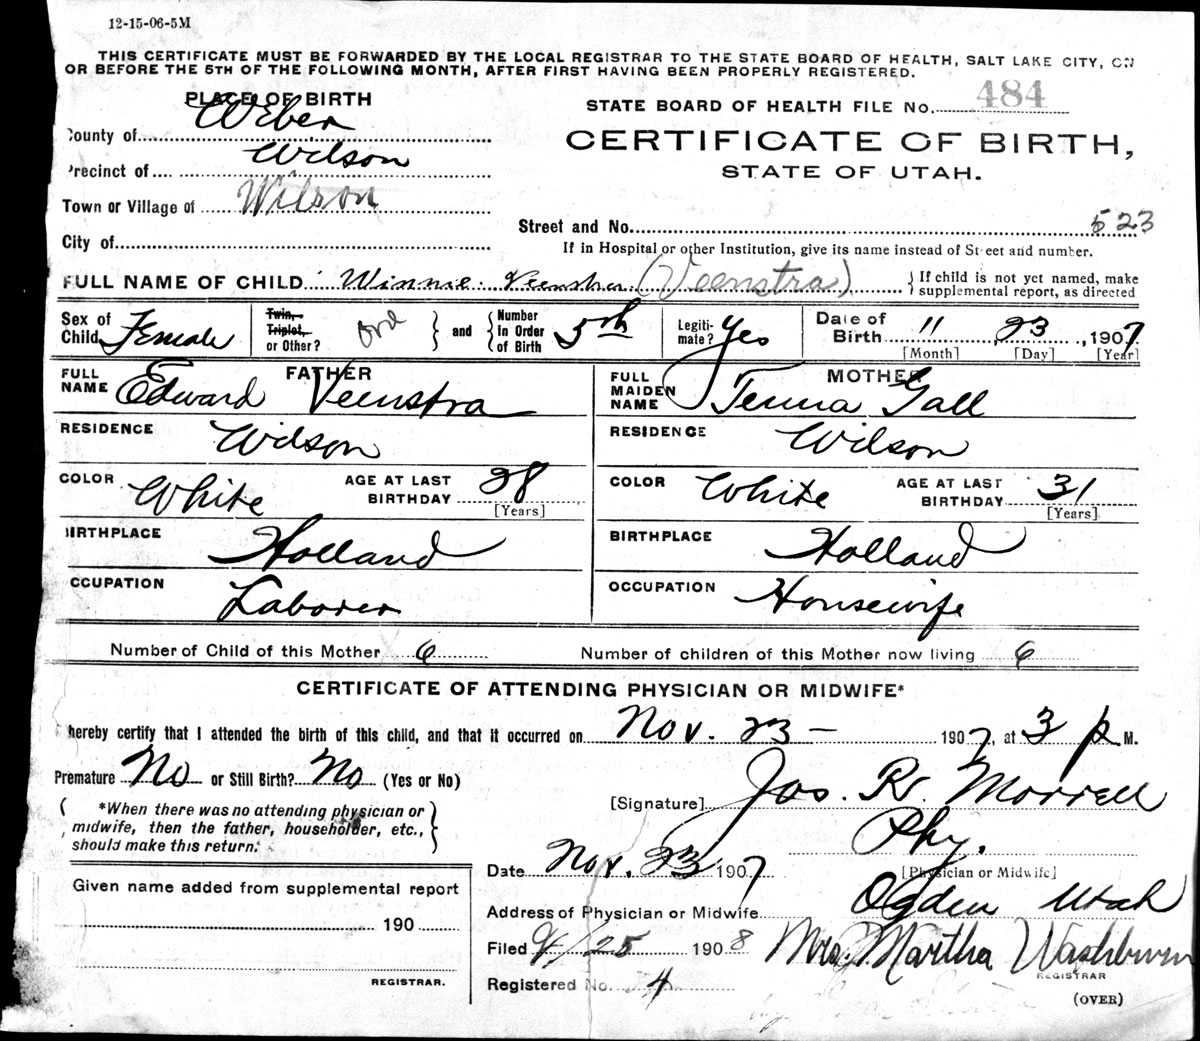 12-15-06-5M
THIS CERTIFICATE MUST BE FORWARDED BY THE LOCAL REGISTRAR TO THE STATE BOARD OF HEALTH, SALT LAKE CITY, ON
OR BEFORE THE 5TH OF THE FOLLOWING MONTH, AFTER FIRST HAVING BEEN PROPERLY REGISTERED.
PLACE OF BIRTH
County of Weber
Precinct of Wilson
Town or Village of Wilson
City of
STATE BOARD OF HEALTH FILE No. 484
CERTIFICATE OF BIRTH,
STATE OF UTAH.
Street and No. 523
If in Hospital or other Institution, give its name instead of Street and number.
FULL NAME OF CHILD Winnie Veenstra (Veenstra) { If child is not yet named, make supplemental report, as directed
Sex of Child Female Twin, Triplet, or Other? and { Number in Order of Birth 5th Legitimate? Yes Date of Birth 11 23, 1907
[Month] [Day] [Year]
FATHER
FULL NAME Edward Veenstra
RESIDENCE Wilson
COLOR White AGE AT LAST BIRTHDAY 28
[Years]
BIRTHPLACE Holland
OCCUPATION Laborer
MOTHER
FULL MAIDEN NAME Tenna Gall
RESIDENCE Wilson
COLOR White AGE AT LAST BIRTHDAY 31
[Years]
BIRTHPLACE Holland
OCCUPATION Housewife
Number of Child of this Mother 6 Number of children of this Mother now living 6
CERTIFICATE OF ATTENDING PHYSICIAN OR MIDWIFE*
I hereby certify that I attended the birth of this child, and that it occurred on Nov. 23 - 1907, at 3 P. M.
Premature No or Still Birth? No (Yes or No)
{ *When there was no attending physician or
midwife, then the father, householder, etc.,
should make this return. }
[Signature] Jos. R. Morrell
Phy.
[Physician or Midwife]
Date Nov. 23 1907
Address of Physician or Midwife Ogden Utah
Filed 4/25 1908 Mrs. Martha Washburn
REGISTRAR
Registered No. 4
(OVER)
Given name added from supplemental report
190
REGISTRAR.